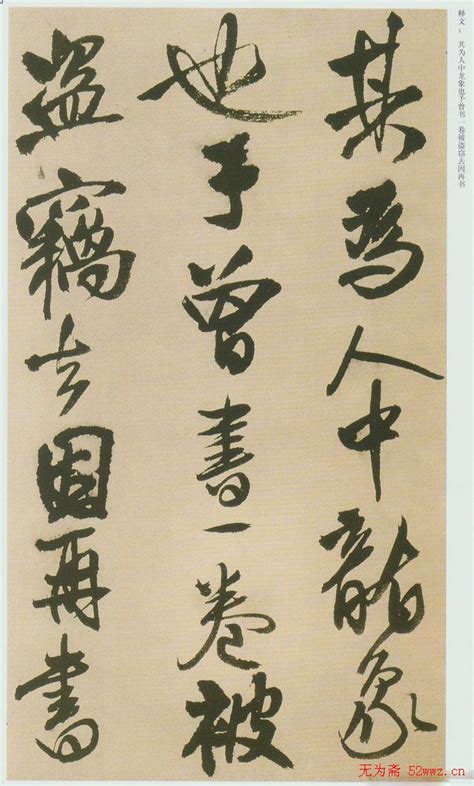 其為人中龍象
也予曾書一卷被
盜竊去因再書
释文：其为人中龙象也予曾书一卷被盗窃去因再书
无为斋 52wwz.cn